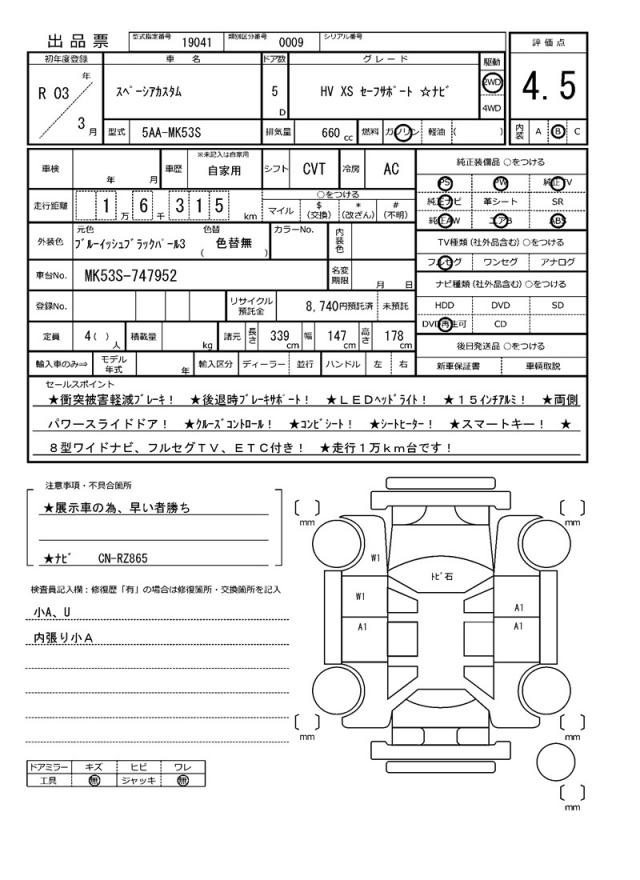 出品票 型式指定番号 19041 類別区分番号 0009 シリアル番号
評価点
4.5
内装 A B C
初年度登録 車名 ドア数 グレード 駆動
R 03 年 3 月
スペーシアカスタム 5 D HV XS セーフサポート ☆ナビ 2WD 4WD
型式 5AA-MK53S 排気量 660 cc 燃料 ガソリン 軽油 ( )
車検 年 月 車歴 ※未記入は自家用 自家用 シフト CVT 冷房 AC
走行距離 1万6千315 km
○をつける
マイル $(交換) *(改ざん) #(不明)
外装色 元色 ブルーイッシュブラックパール3 色替 ( 色替無 ) カラーNo. 内装色
車台No. MK53S-747952 名変期限 月 日
登録No. リサイクル預託金 8,740円預託済 未預託
定員 4( )人 積載量 kg 諸元 長さ 339 cm 幅 147 cm 高さ 178 cm
輸入車のみ⇒ モデル年式 年 輸入区分 ディーラー 並行 ハンドル 左 右
純正装備品 ○をつける
PS PW 純正TV
純正ナビ 革シート SR
純正AW エアB ABS
TV種類(社外品含む)○をつける
フルセグ ワンセグ アナログ
ナビ種類(社外品含む)○をつける
HDD DVD SD
DVD再生可 CD
後日発送品 ○をつける
新車保証書 車輌取説
セールスポイント
★衝突被害軽減ブレーキ! ★後退時ブレーキサポート! ★LEDヘッドライト! ★15インチアルミ! ★両側
パワースライドドア! ★クルーズコントロール! ★コンビシート! ★シートヒーター! ★スマートキー! ★
8型ワイドナビ、フルセグTV、ETC付き! ★走行1万km台です!
注意事項・不具合箇所
★展示車の為、早い者勝ち
★ナビ CN-RZ865
検査員記入欄:修復歴「有」の場合は修復箇所・交換箇所を記入
小A、U
内張り小A
ドアミラー キズ ヒビ ワレ
工具 無 ジャッキ 無
mm
mm
W1
トビ石
W1
A1
A1
A1
mm
mm
mm